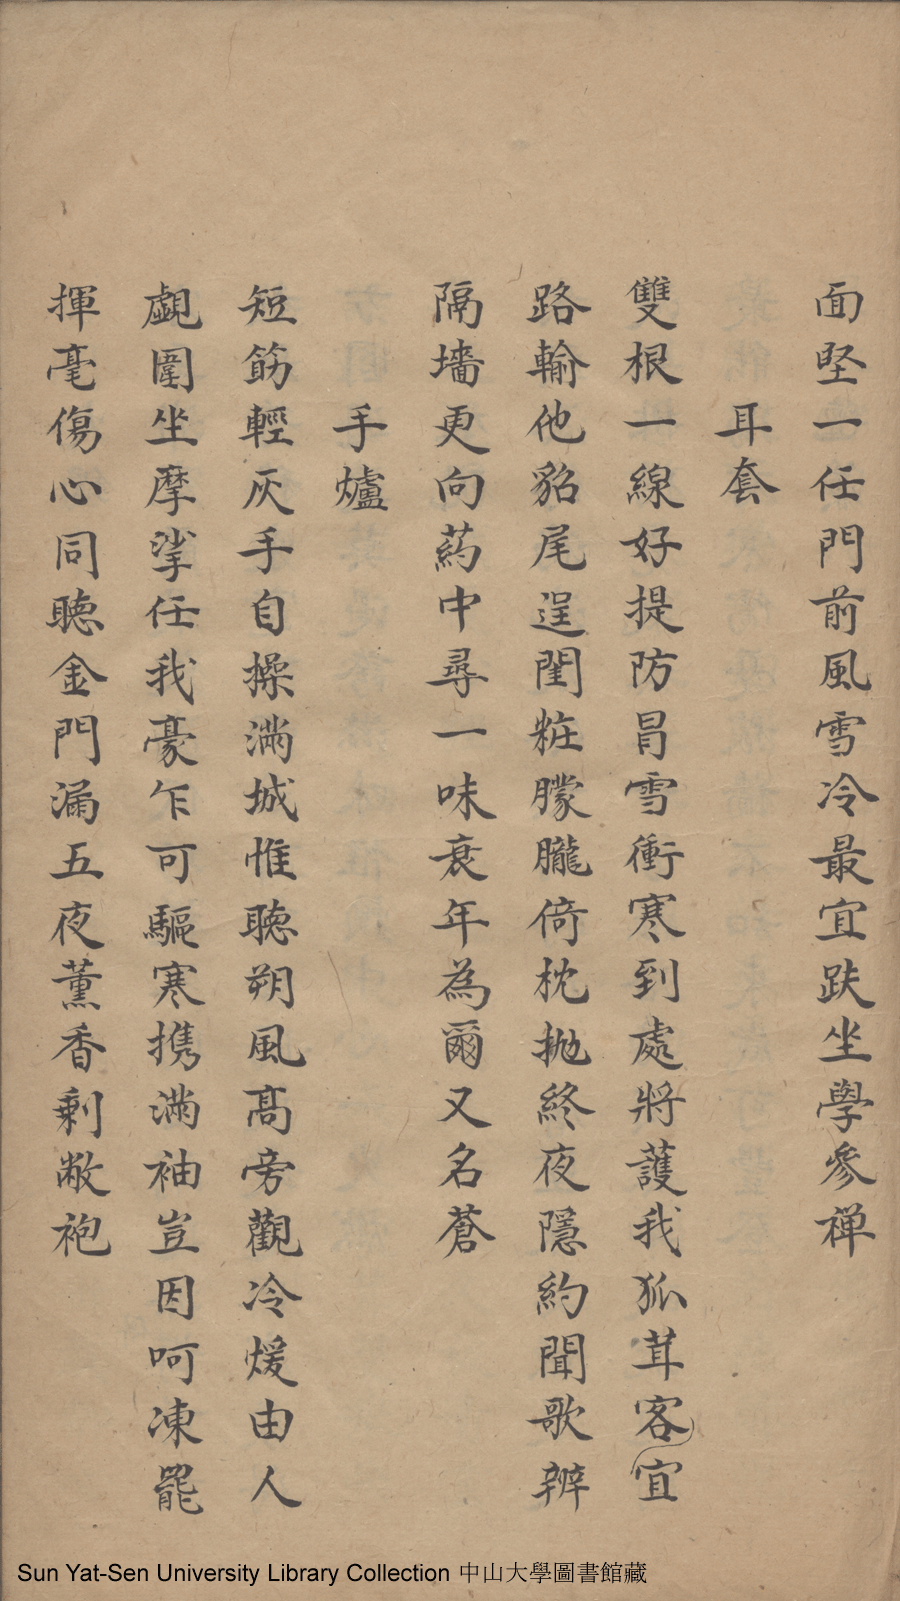 面坚一任門前風雪冷最宜趺坐學參禅
耳套
雙根一線好提防冒雪衝寒到處將護我狐茸客宜
路輸他貂尾逞閨粧朦朧倚枕抛終夜隱約聞歌辨
隔墻更向葯中尋一味衰年為爾又名蒼
手爐
短筯輕灰手自操滿城惟聽朔風髙旁觀冷煖由人
覷圍坐摩挲任我豪乍可驅寒携滿袖豈因呵凍罷
揮毫傷心同聽金門漏五夜薰香剩敝袍
Sun Yat-Sen University Library Collection 中山大學圖書館藏